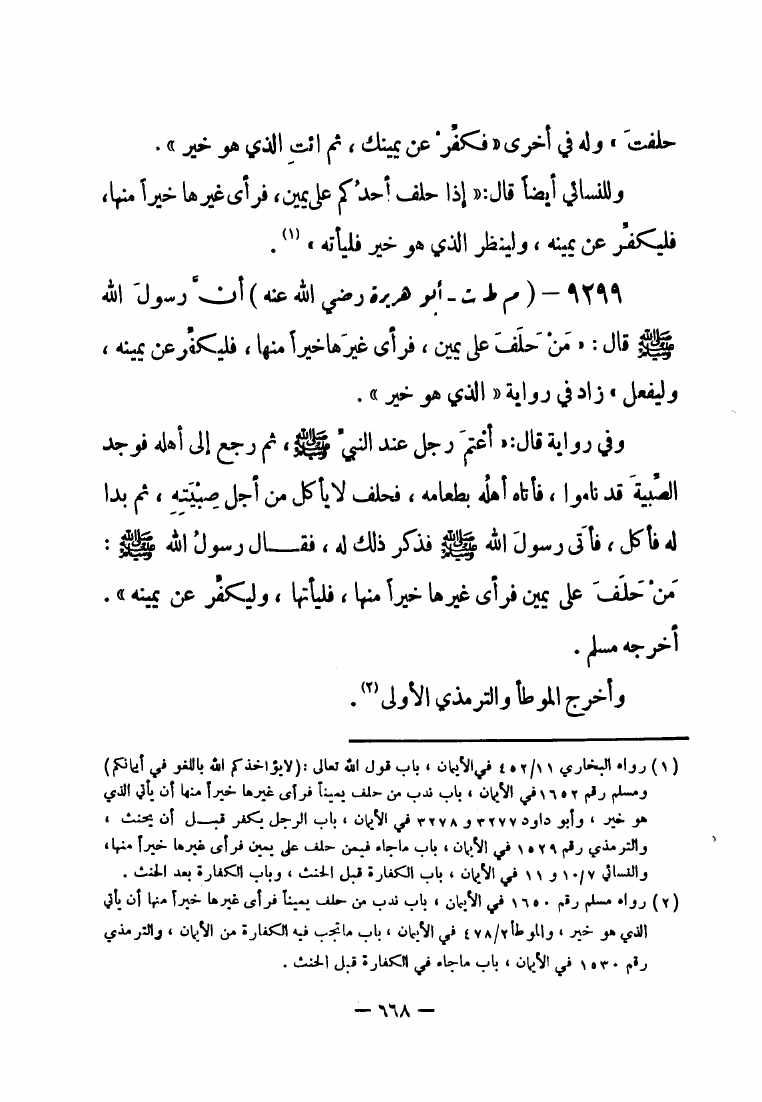 حلفتَ » وله في أخرى « فكفِّرْ عن يمينك ، ثم ائتِ الذي هو خير » .
وللنسائي أيضاً قال: « إذا حلف أحدُكم على يمين، فرأى غيرها خيراً منها،
فليكفِّر عن يمينه ، ولينظر الذي هو خير فليأته » (١) .
٩٢٩٩ – ( م ط ت - أبو هريرة رضي الله عنه ) أنَّ رسولَ الله
ﷺ قال : « مَنْ حَلَفَ على يمين ، فرأى غيرَها خيراً منها ، فليكفِّر عن يمينه ،
وليفعل » زاد في رواية « الذي هو خير » .
وفي رواية قال: « أعْتَمَ رجل عند النبيِّ ﷺ ، ثم رجع إلى أهله فوجد
الصِّبيةَ قد ناموا ، فأتاه أهلُه بطعامه ، فحلف لا يأكل من أجل صِبْيَتِهِ ، ثم بدا
له فأكل ، فأتى رسولَ الله ﷺ فذكر ذلك له ، فقـــال رسولُ الله ﷺ :
مَنْ حَلَفَ على يمين فرأى غيرها خيراً منها ، فليأتها ، وليكفِّر عن يمينه » .
أخرجه مسلم .
وأخرج الموطأ والترمذي الأولى (٢) .
(١) رواه البخاري ١١/٤٥٢ في الأيمان ، باب قول الله تعالى : (لا يؤاخذكم الله باللغو في أيمانكم)
ومسلم رقم ١٦٥٢ في الأيمان ، باب ندب من حلف يميناً فرأى غيرها خيراً منها أن يأتي الذي
هو خير ، وأبو داود ٣٢٧٧ و ٣٢٧٨ في الأيمان ، باب الرجل يكفر قبـل أن يحنث ،
والترمذي رقم ١٥٢٩ في الأيمان ، باب ماجاء فيمن حلف على يمين فرأى غيرها خيراً منها،
والنسائي ٧/١٠ و ١١ في الأيمان ، باب الكفارة قبل الحنث ، وباب الكفارة بعد الحنث .
(٢) رواه مسلم رقم ١٦٥٠ في الأيمان ، باب ندب من حلف يميناً فرأى غيرها خيراً منها أن يأتي
الذي هو خير ، والموطأ ٢/٤٧٨ في الأيمان ، باب ماتجب فيه الكفارة من الأيمان ، والترمذي
رقم ١٥٣٠ في الأيمان ، باب ماجاء في الكفارة قبل الحنث .
– ٦٦٨ –